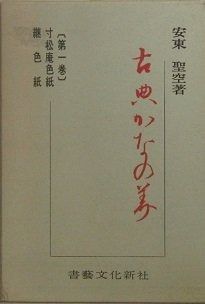 安東 聖空著
古典かなの美
〔第一巻〕
寸松庵色紙
継色紙
書藝文化新社